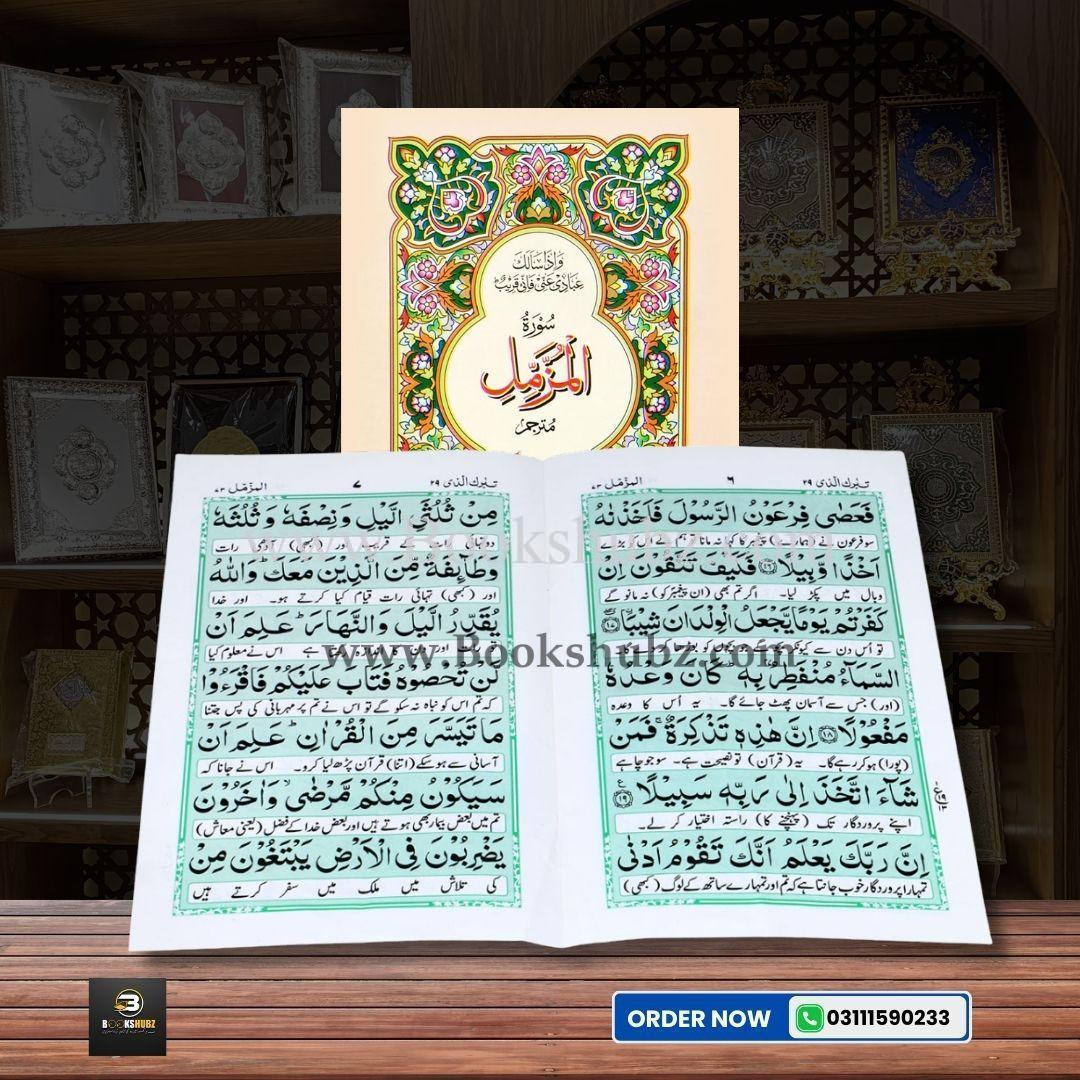 وَاِذَا سَاَلَكَ
عِبَادِیْ عَنِّیْ فَاِنِّیْ قَرِیْبٌ ؕ
سُوْرَةُ
الْمُزَّمِّلِ
مُترجم
تبٰرك الّذى ٢٩ ٦ المزّمّل ٧٣
فَعَصٰى فِرْعَوْنُ الرَّسُوْلَ فَاَخَذْنٰهُ
سو فرعون نے (ہمارے) پیغمبر کا کہا نہ مانا تو ہم نے اس کو بڑے
اَخْذًا وَّبِیْلًا ﴿۱۶﴾ فَكَیْفَ تَتَّقُوْنَ اِنْ
وبال میں پکڑ لیا۔ اگر تم بھی (ان پیغمبر کو) نہ مانو گے
كَفَرْتُمْ یَوْمًا یَّجْعَلُ الْوِلْدَانَ شِیْبَا ﴿۱۷﴾
تو اُس دن سے کیونکر بچو گے جو بچوں کو بوڑھا کر دے گا۔
السَّمَآءُ مُنْفَطِرٌۢ بِهٖ ؕ كَانَ وَعْدُهٗ
(اور) جس سے آسمان پھٹ جائے گا۔ یہ اُس کا وعدہ
مَفْعُوْلًا ﴿۱۸﴾ اِنَّ هٰذِهٖ تَذْكِرَةٌ ۚ فَمَنْ
(پورا) ہو کر رہے گا۔ یہ (قرآن) تو نصیحت ہے۔ سو جو چاہے
شَآءَ اتَّخَذَ اِلٰى رَبِّهٖ سَبِیْلًا ﴿۱۹﴾ ع
اپنے پروردگار تک (پہنچنے کا) راستہ اختیار کر لے۔
اِنَّ رَبَّكَ یَعْلَمُ اَنَّكَ تَقُوْمُ اَدْنٰى
تمہارا پروردگار خوب جانتا ہے کہ تم اور تمہارے ساتھ کے لوگ (کبھی)
تبٰرك الّذى ٢٩ ٧ المزّمّل ٧٣
مِنْ ثُلُثَیِ الَّیْلِ وَنِصْفَهٗ وَثُلُثَهٗ
دو تہائی رات کے قریب اور (کبھی) آدھی رات
وَطَآىِٕفَةٌ مِّنَ الَّذِیْنَ مَعَكَ ؕ وَاللّٰهُ
اور (کبھی) تہائی رات قیام کیا کرتے ہو۔ اور خدا
یُقَدِّرُ الَّیْلَ وَالنَّهَارَ ؕ عَلِمَ اَنْ
اور دن کا اندازہ رکھتا ہے اس نے معلوم کیا
لَّنْ تُحْصُوْهُ فَتَابَ عَلَیْكُمْ فَاقْرَءُوْا
کہ تم اس کو نباہ نہ سکو گے تو اس نے تم پر مہربانی کی پس جتنا
مَا تَیَسَّرَ مِنَ الْقُرْاٰنِ ؕ عَلِمَ اَنْ
آسانی سے ہو سکے (اتنا) قرآن پڑھ لیا کرو۔ اس نے جانا کہ
سَیَكُوْنُ مِنْكُمْ مَّرْضٰى ۙ وَاٰخَرُوْنَ
تم میں بعض بیمار بھی ہوتے ہیں اور بعض خدا کے فضل (یعنی معاش)
یَضْرِبُوْنَ فِی الْاَرْضِ یَبْتَغُوْنَ مِنْ
کی تلاش میں ملک میں سفر کرتے ہیں
www.Bookshubz.com
www.Bookshubz.com
BOOKSHUBZ
ORDER NOW 03111590233